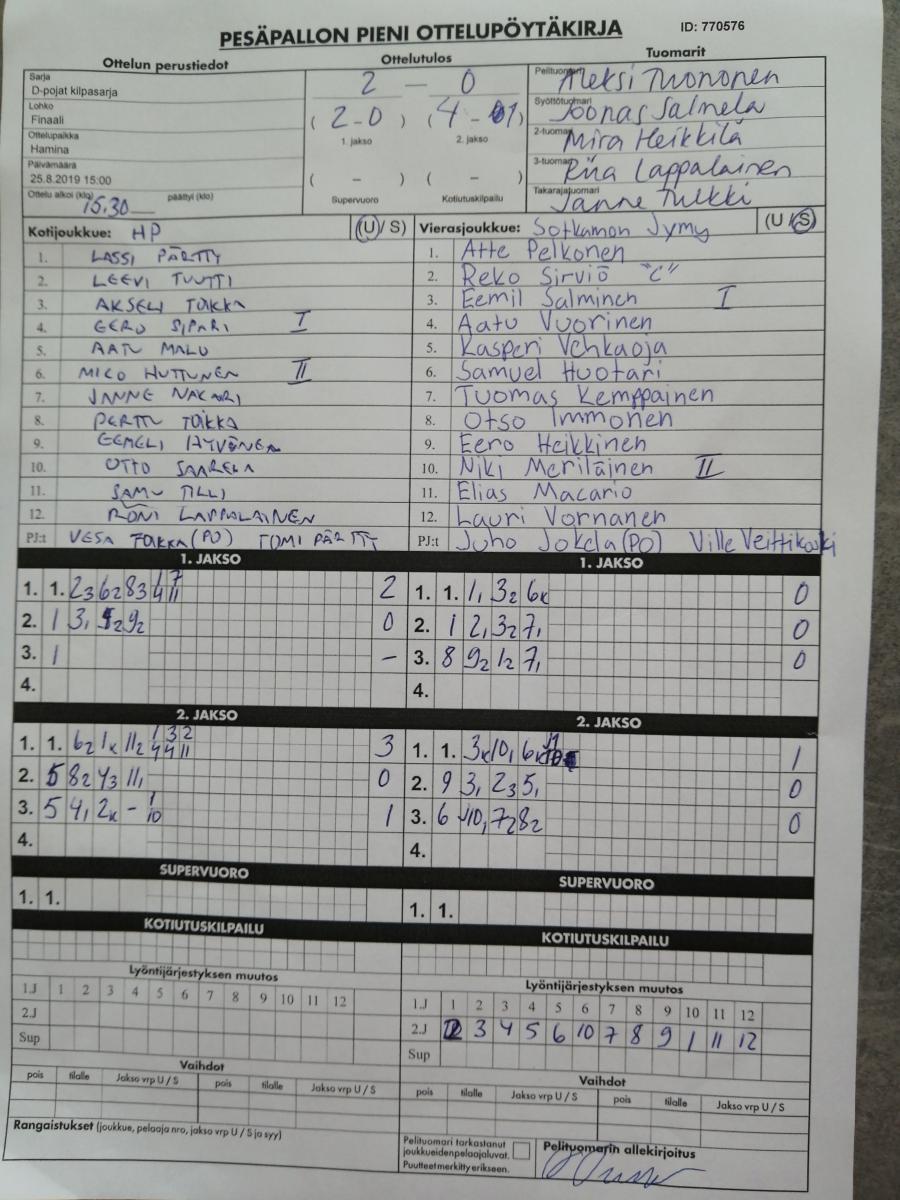 PESÄPALLON PIENI OTTELUPÖYTÄKIRJA ID: 770576
Ottelun perustiedot Ottelutulos Tuomarit
Sarja
D-pojat kilpasarja
Lohko
Finaali
Ottelupaikka
Hamina
Päivämäärä
25.8.2019 15:00
Ottelu alkoi (klo) 15.30 päättyi (klo)
2 — 0
(2-0) (4-1)
1. jakso 2. jakso
( - ) ( - )
Supervuoro Kotiutuskilpailu
Pelituomari Aleksi Tuononen
Syöttötuomari Joonas Salmela
2-tuomari Mira Heikkilä
3-tuomari Riia Lappalainen
Takarajatuomari Janne Tulkki
Kotijoukkue: HP (U/S)
1. LASSI PÄRTTY
2. LEEVI TUUTTI
3. AKSELI TOIKKA
4. EERO SIPARI I
5. AATU MALU
6. MICO HUTTUNEN II
7. JANNE NAKARI
8. PERTTU TOIKKA
9. EEMELI
10. OTTO SAARELA
11. SAMU TILLI
12. RONI LAPPALAINEN
PJ:t VESA TOIKKA (PO) TOMI PÄRTTY
Vierasjoukkue: Sotkamon Jymy (U/S)
1. Atte Pelkonen
2. Reko Sirviö "C"
3. Eemil Salminen I
4. Aatu Vuorinen
5. Kasperi Vehkaoja
6. Samuel Huotari
7. Tuomas Kemppainen
8. Otso Immonen
9. Eero Heikkinen
10. Niki Meriläinen II
11. Elias Macario
12. Lauri Vornanen
PJ:t Juho Jokela (PO) Ville Veittikoski
1. JAKSO
1. 1. 2 3 6 2 8 3 1/4 7/11 2
2. 1 3, 5 2 9 2 0
3. 1 –
4.
1. JAKSO
1. 1. 1, 3 2 6k 0
2. 1 2, 3 2 7, 0
3. 8 9 2 1 2 7, 0
4.
2. JAKSO
1. 1. 6 2 1k 11 2 1/4 3/4 2/11 3
2. 5 8 2 4 3 11, 0
3. 5 4, 2k - 1/10 1
4.
2. JAKSO
1. 1. 3k 10, 6k 1
2. 9 3, 2 3 5, 0
3. 6 10, 7 2 8 2 0
4.
SUPERVUORO
1. 1.
SUPERVUORO
1. 1.
KOTIUTUSKILPAILU
KOTIUTUSKILPAILU
Lyöntijärjestyksen muutos
1.J 1 2 3 4 5 6 7 8 9 10 11 12
2.J
Sup
Lyöntijärjestyksen muutos
1.J 1 2 3 4 5 6 7 8 9 10 11 12
2.J 2 3 4 5 6 10 7 8 9 1 11 12
Sup
Vaihdot
pois tilalle Jakso vrp U / S pois tilalle Jakso vrp U / S
Vaihdot
pois tilalle Jakso vrp U / S pois tilalle Jakso vrp U / S
Rangaistukset (joukkue, pelaaja nro, jakso vrp U / S ja syy)
Pelituomari tarkastanut
joukkueiden pelaajaluvat.
Puutteet merkitty erikseen.
Pelituomarin allekirjoitus